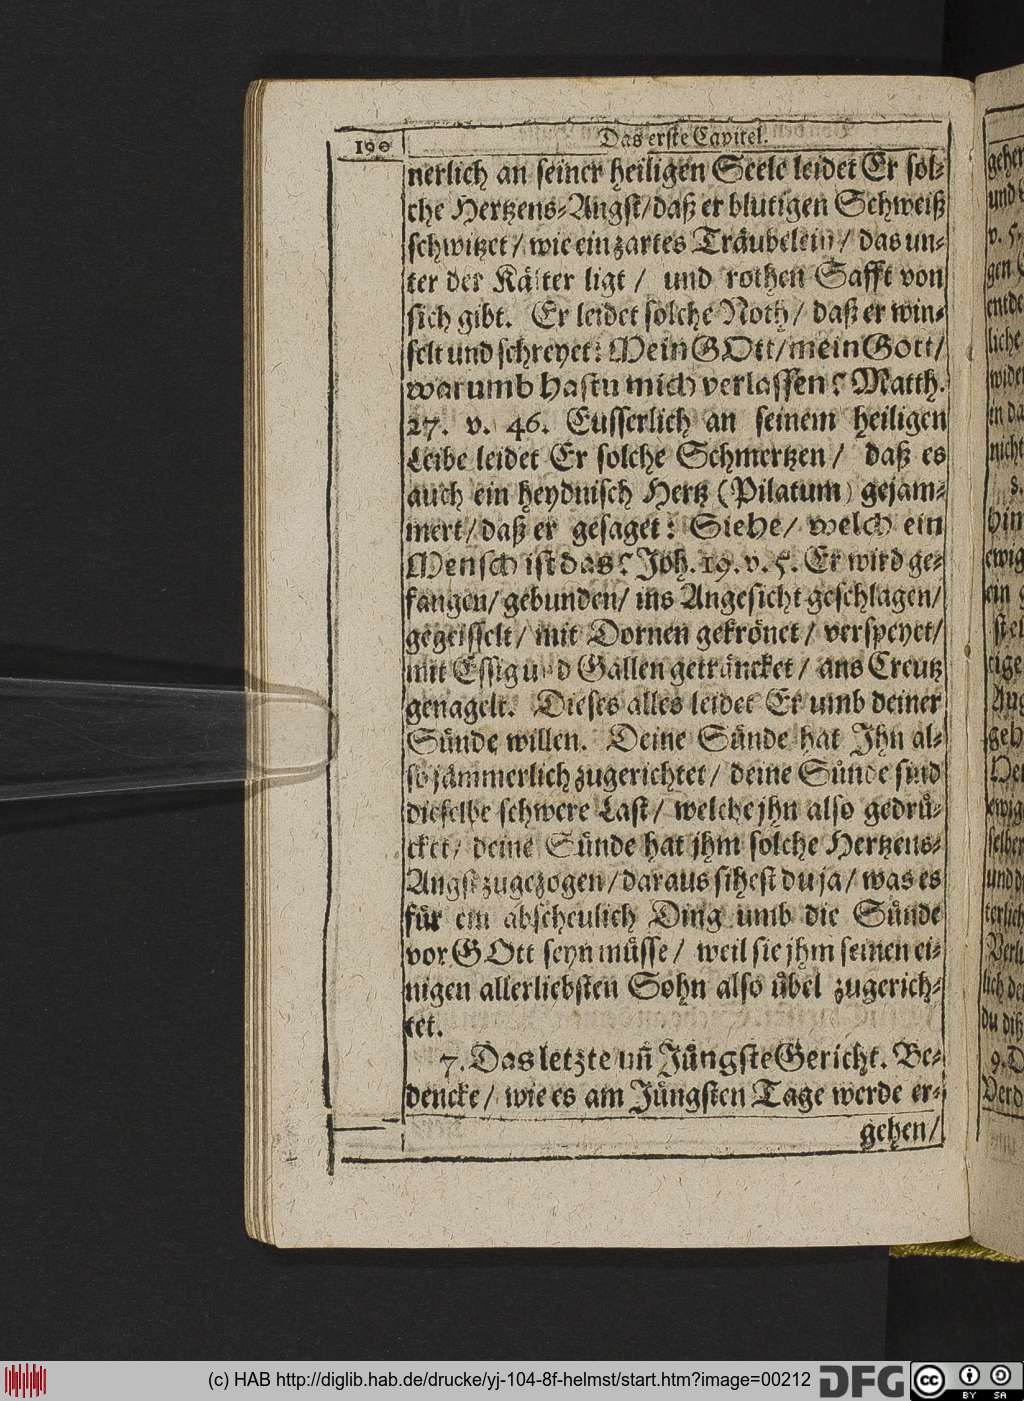 190 Das erste Capitel.
nerlich an seiner heiligen Seele leidet Er sol-
che Hertzens-Angst/daß er blutigen Schweiß
schwitzet/ wie ein zartes Träubelein/ das un-
ter der Kälter ligt/ und rothen Safft von
sich gibt. Er leidet solche Noth/ daß er win-
selt und schreyet: Mein GOtt/mein Gott/
warumb hastu mich verlassen? Matth.
27. v. 46. Eusserlich an seinem heiligen
Leibe leidet Er solche Schmertzen/ daß es
auch ein heydnisch Hertz (Pilatum) gejam-
mert/daß er gesaget: Siehe/ welch ein
Mensch ist das? Joh. 19. v. 5. Er wird ge-
fangen/ gebunden/ ins Angesicht geschlagen/
gegeisselt/ mit Dornen gekrönet/ verspeyet/
mit Essig und Gallen geträncket/ ans Creutz
genagelt. Dieses alles leidet Er umb deiner
Sünde willen. Deine Sünde hat Ihn al-
so jämmerlich zugerichtet/ deine Sünde sind
dieselbe schwere Last/ welche jhn also gedrü-
cket/ deine Sünde hat jhm solche Hertzens-
Angst zugezogen/daraus sihest du ja/ was es
für ein abscheulich Ding umb die Sünde
vor GOtt seyn müsse/ weil sie jhm seinen ei-
nigen allerliebsten Sohn also übel zugerich-
tet.
7. Das letzte uñ Jüngste Gericht. Be-
dencke/ wie es am Jüngsten Tage werde er-
gehen/
(c) HAB http://diglib.hab.de/drucke/yj-104-8f-helmst/start.htm?image=00212 DFG cc BY SA